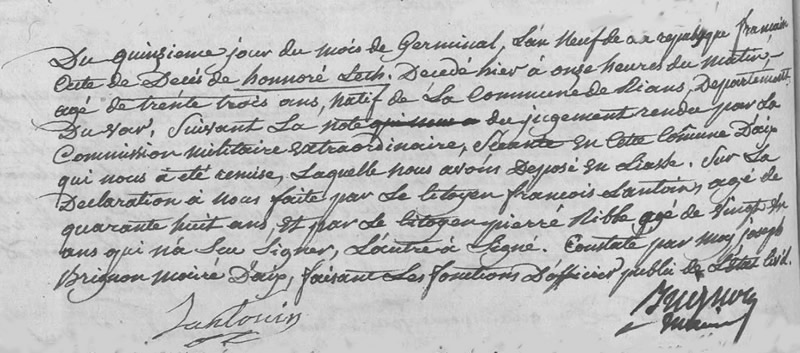 Du quinzieme jour du mois de Germinal, L'an neuf de la republique francaise
acte de Decés de honnoré Lech. Decedé hier à onze heures du matin,
agé de trente trois ans, natif de La Commune de Rians, Departement
Du var, Suivant La note du jugement rendu par La
Commission militaire extraordinaire, Séante en Cette Commune D'aix
qui nous à été remise, Laquelle nous avoins Deposé en Liasse. Sur La
Declaration à nous faite par Le Citoyen françois Lantoin, agé de
quarante huit ans, et par Le Citoyen pierre Ribbe agé de vingt
ans qui n'a Seu Signer, L'autre à Signé. Constaté par moy, joseph
Brignon maire D'aix, faisant Les fonctions D'officier public de L'état Civil.
Lantouin
Brignon
maire